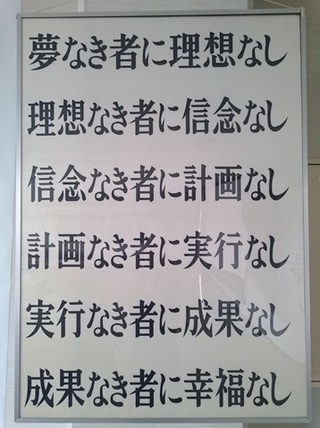 夢なき者に理想なし
理想なき者に信念なし
信念なき者に計画なし
計画なき者に実行なし
実行なき者に成果なし
成果なき者に幸福なし